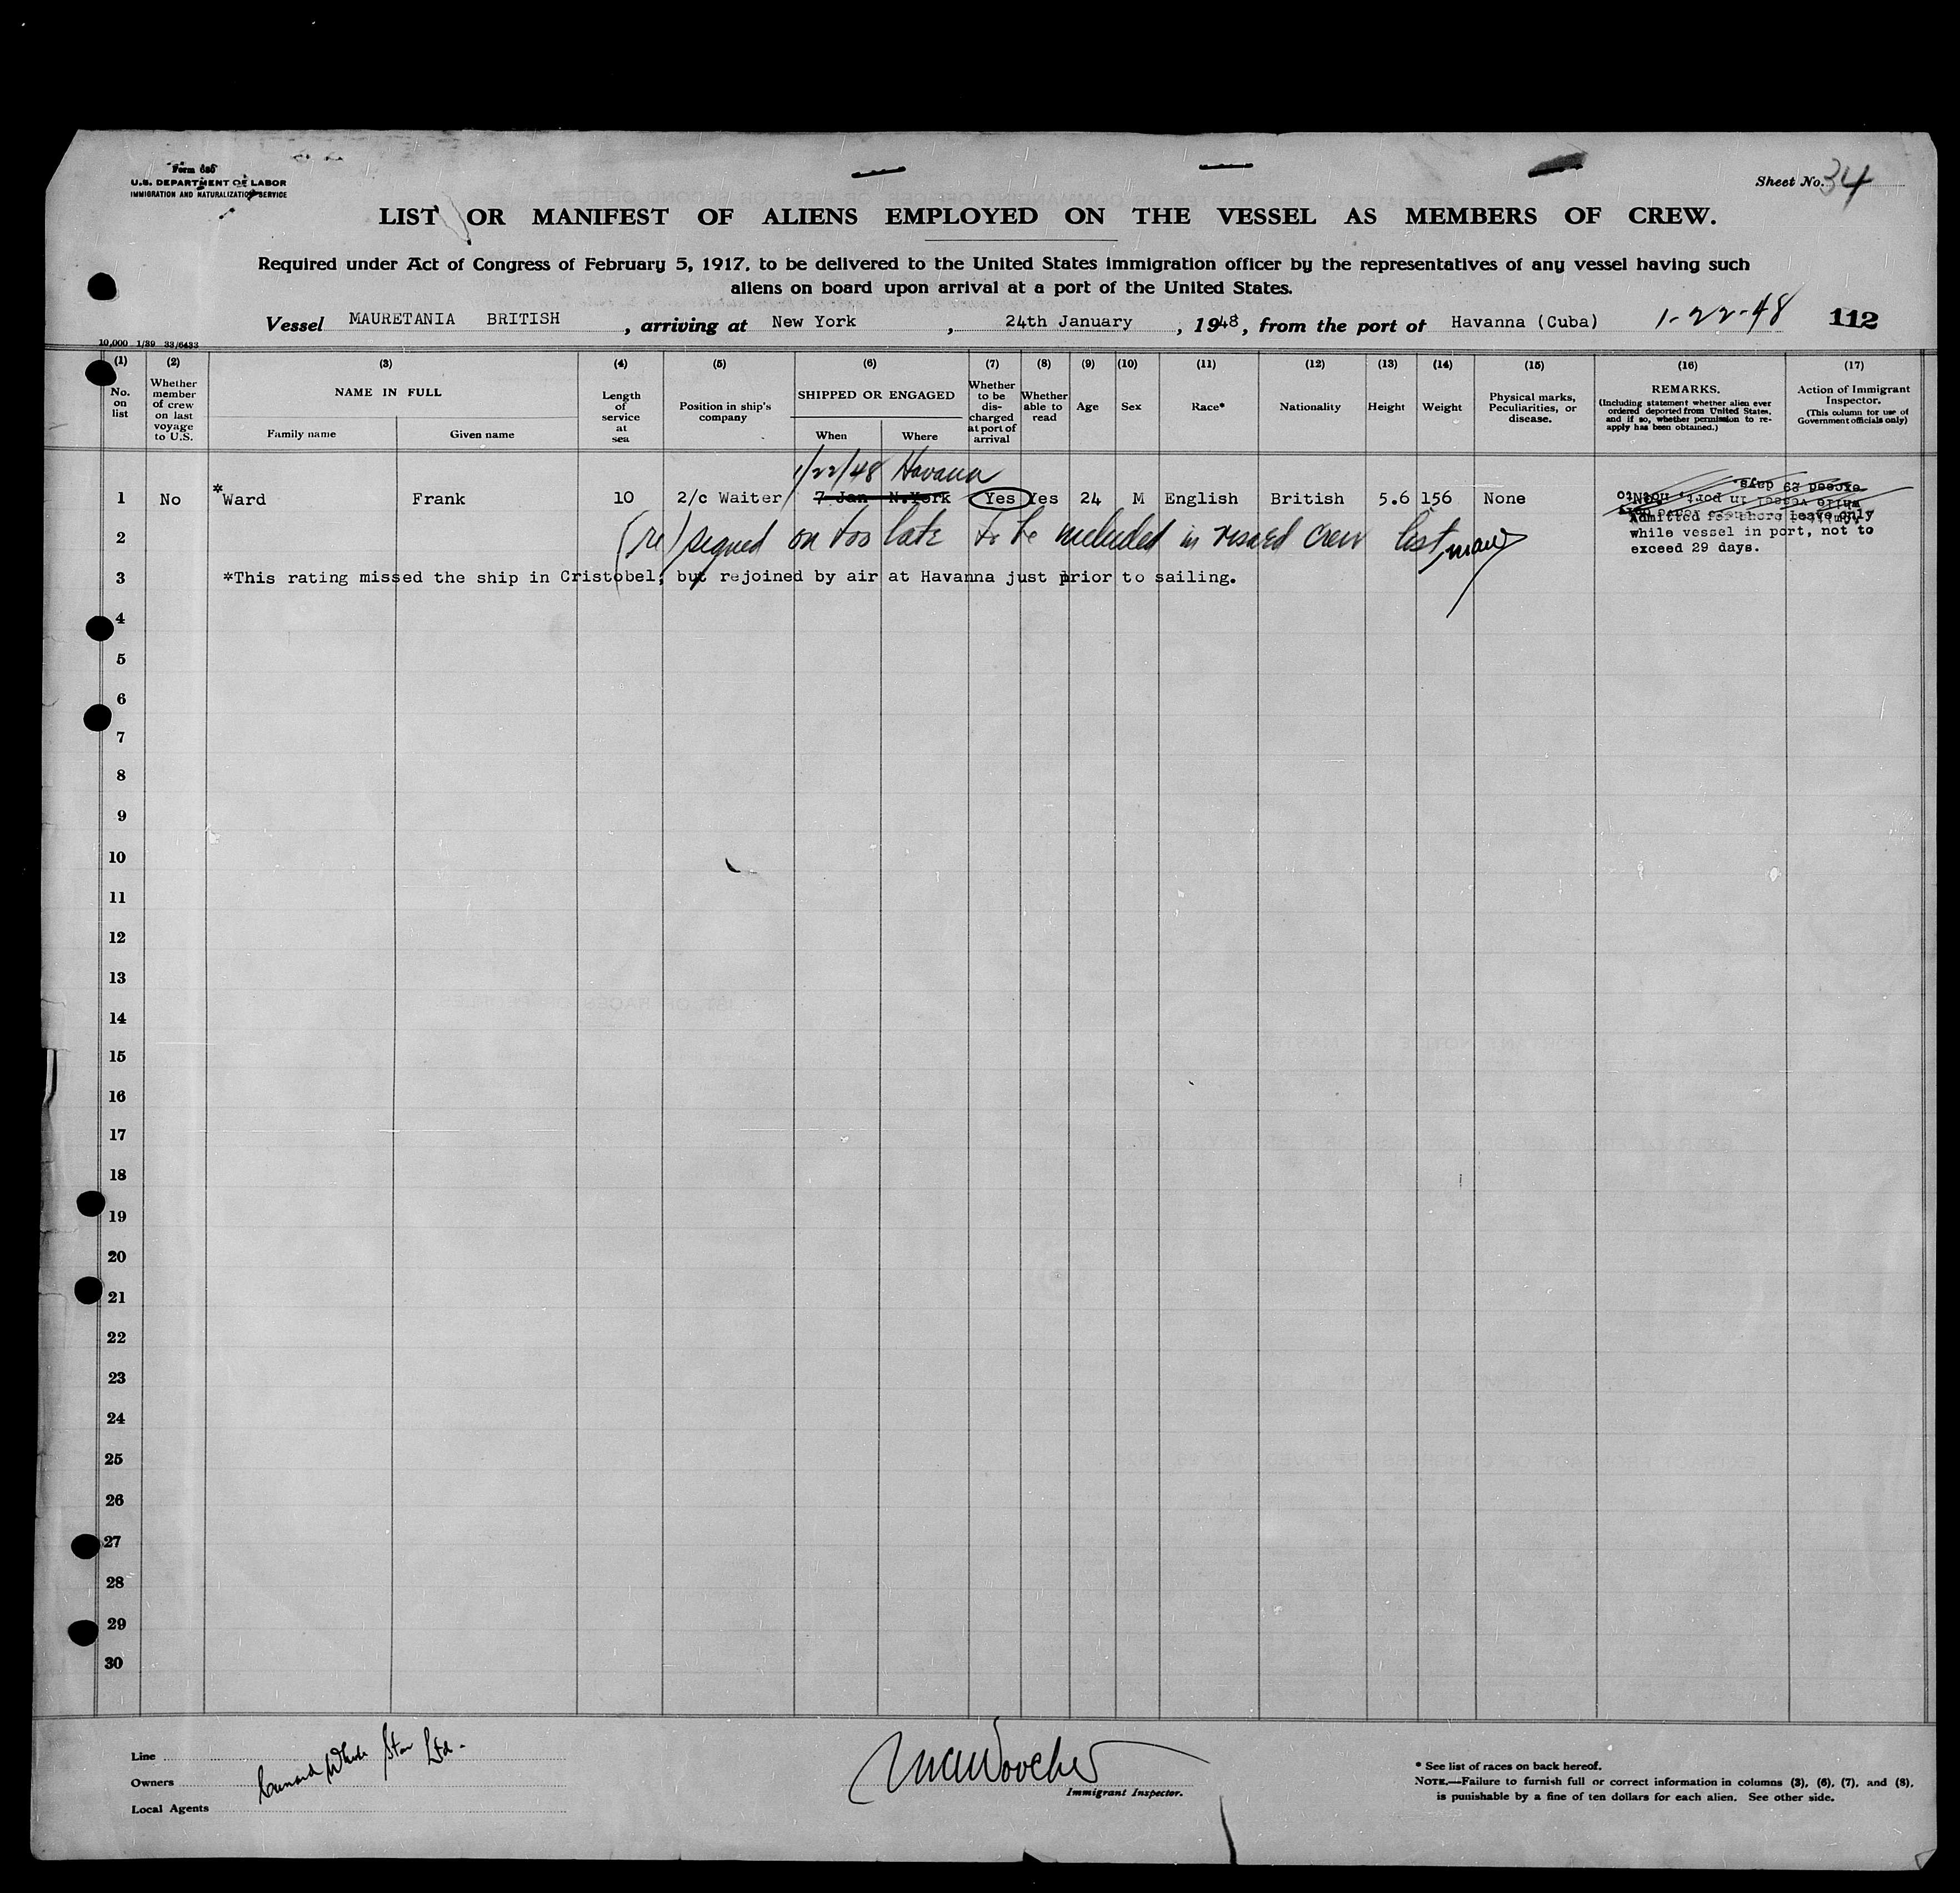 Form 680
U.S. DEPARTMENT OF LABOR
IMMIGRATION AND NATURALIZATION SERVICE
Sheet No. 34
LIST OR MANIFEST OF ALIENS EMPLOYED ON THE VESSEL AS MEMBERS OF CREW.
Required under Act of Congress of February 5, 1917, to be delivered to the United States immigration officer by the representatives of any vessel having such
aliens on board upon arrival at a port of the United States.
Vessel MAURETANIA BRITISH, arriving at New York, 24th January, 1948, from the port of Havanna (Cuba) 1-22-48 112
10,000 1/39 33/6433
(1) (2) (3) (4) (5) (6) (7) (8) (9) (10) (11) (12) (13) (14) (15) (16) (17)
No. on list
Whether member of crew on last voyage to U.S.
NAME IN FULL
Family name Given name
Length of service at sea
Position in ship's company
SHIPPED OR ENGAGED
When Where
Whether to be discharged at port of arrival
Whether able to read
Age
Sex
Race*
Nationality
Height
Weight
Physical marks, Peculiarities, or disease.
REMARKS.
(Including statement whether alien ever ordered deported from United States, and if so, whether permission to re-apply has been obtained.)
Action of Immigrant Inspector.
(This column for use of Government officials only)
1/22/48 Havana
1 No *Ward Frank 10 2/c Waiter 7 Jan N.York Yes Yes 24 M English British 5.6 156 None No.
exceed 29 days.
while vessel in port, not to
Admitted for shore leave only
while vessel in port, not to
exceed 29 days.
2 (re) signed on too late to be included in visaed crew list,
3 *This rating missed the ship in Cristobel; but rejoined by air at Havanna just prior to sailing.
4
5
6
7
8
9
10
11
12
13
14
15
16
17
18
19
20
21
22
23
24
25
26
27
28
29
30
Line
Owners Cunard White Star Ltd.
Local Agents
Immigrant Inspector.
* See list of races on back hereof.
NOTE.—Failure to furnish full or correct information in columns (3), (6), (7), and (8),
is punishable by a fine of ten dollars for each alien. See other side.